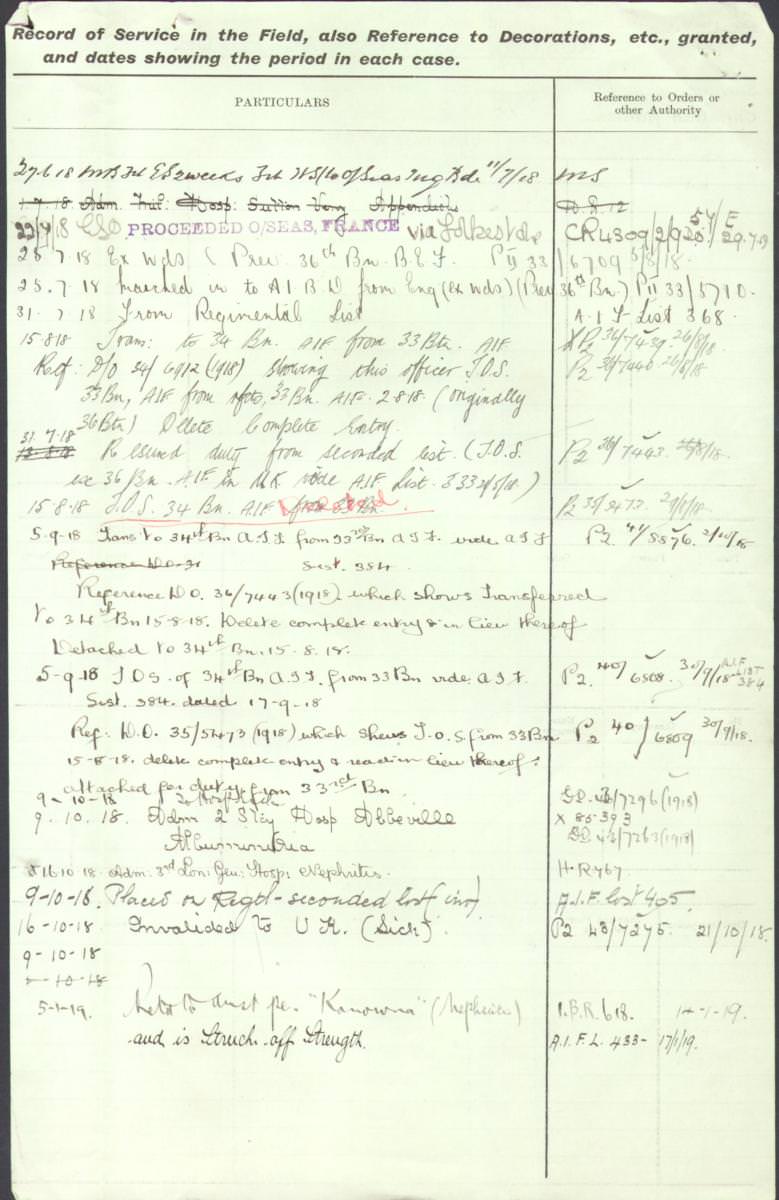 Record of Service in the Field, also Reference to Decorations, etc., granted,
and dates showing the period in each case.
PARTICULARS
Reference to Orders or
other Authority
27.6.18 MB 2 weeks 11/7/18 MS
1.7.18 Adm. Mil. Hosp. Sutton Veny Appendicitis D.R. 12
22/7/18 PROCEEDED O/SEAS, FRANCE via Folkestone CR4309/2/920 29.7.18
25.7.18 Ex Wds (Prev. 36th Bn. B.E.F. PII 33/6709 5/8/18.
25.7.18 marched in to A I B D from Eng (ex Wds) (Prev 36th Bn.) PII 33/5710.
31.7.18 From Regimental List A.I.F List 368.
15-8-18 Trans: to 34 Bn. AIF from 33 Btn. AIF. P2 36/7439. 26/8/18.
Ref: D/O 34/6912 (1918) showing this officer T.O.S. P2 36/7440 26/8/18
33 Bn, AIF from 33 Bn. AIF. 2.8.18. (originally
36 Btn) Delete Complete Entry.
31.7.18 Resumed duty from seconded list. (T.O.S. P2 36/7443
36 Bn. A.I.F. in U.K. vide A.I.F. List
15-8-18 T.O.S. 34 Bn. A.I.F. from 33 Bn. P2 35/5473.
5-9-18 Trans to 34th Bn A.I.F. from 33rd Bn A.I.F. vide A.I.F P2. 41/5876. 2/10/18
List. 384.
Reference D.O. 36/7443 (1918). which shows Transferred
to 34th Bn 15-8-18. Delete complete entry & in lieu thereof
Detached to 34th Bn. 15-8-18.
5-9-18 T.O.S. of 34th Bn A.I.F. from 33 Bn vide. A.I.F. P2. 40/6808. 30/9/18 A.I.F. LIST 384
List. 384. dated 17-9-18
Ref: D.O. 35/5473 (1918) which shews T.O.S. from 33 Bn P2 40/6809 30/9/18.
15-8-18. delete complete entry & read in lieu thereof:
attached for duty from 33rd Bn
9-10-18 To Hospital 43/7296 (1918)
9.10.18. Adm 2 Sty Hosp Abbeville X 85393
Albuminuria 43/7263 (1918)
16.10.18. Adm. 3rd Lon: Gen: Hosp: Nephritis. H.R 767.
9-10-18. Placed on Regtl. seconded list (inv) A.I.F. list 405.
16-10-18. Invalided to U K. (Sick) P2 43/7275 21/10/18.
9-10-18
5-1-19. Retd to Aust per "Kanowna" (Nephritis) I.B.R. 618. 14-1-19.
and is Struck off Strength. A.I.F.L. 433- 17/1/19.